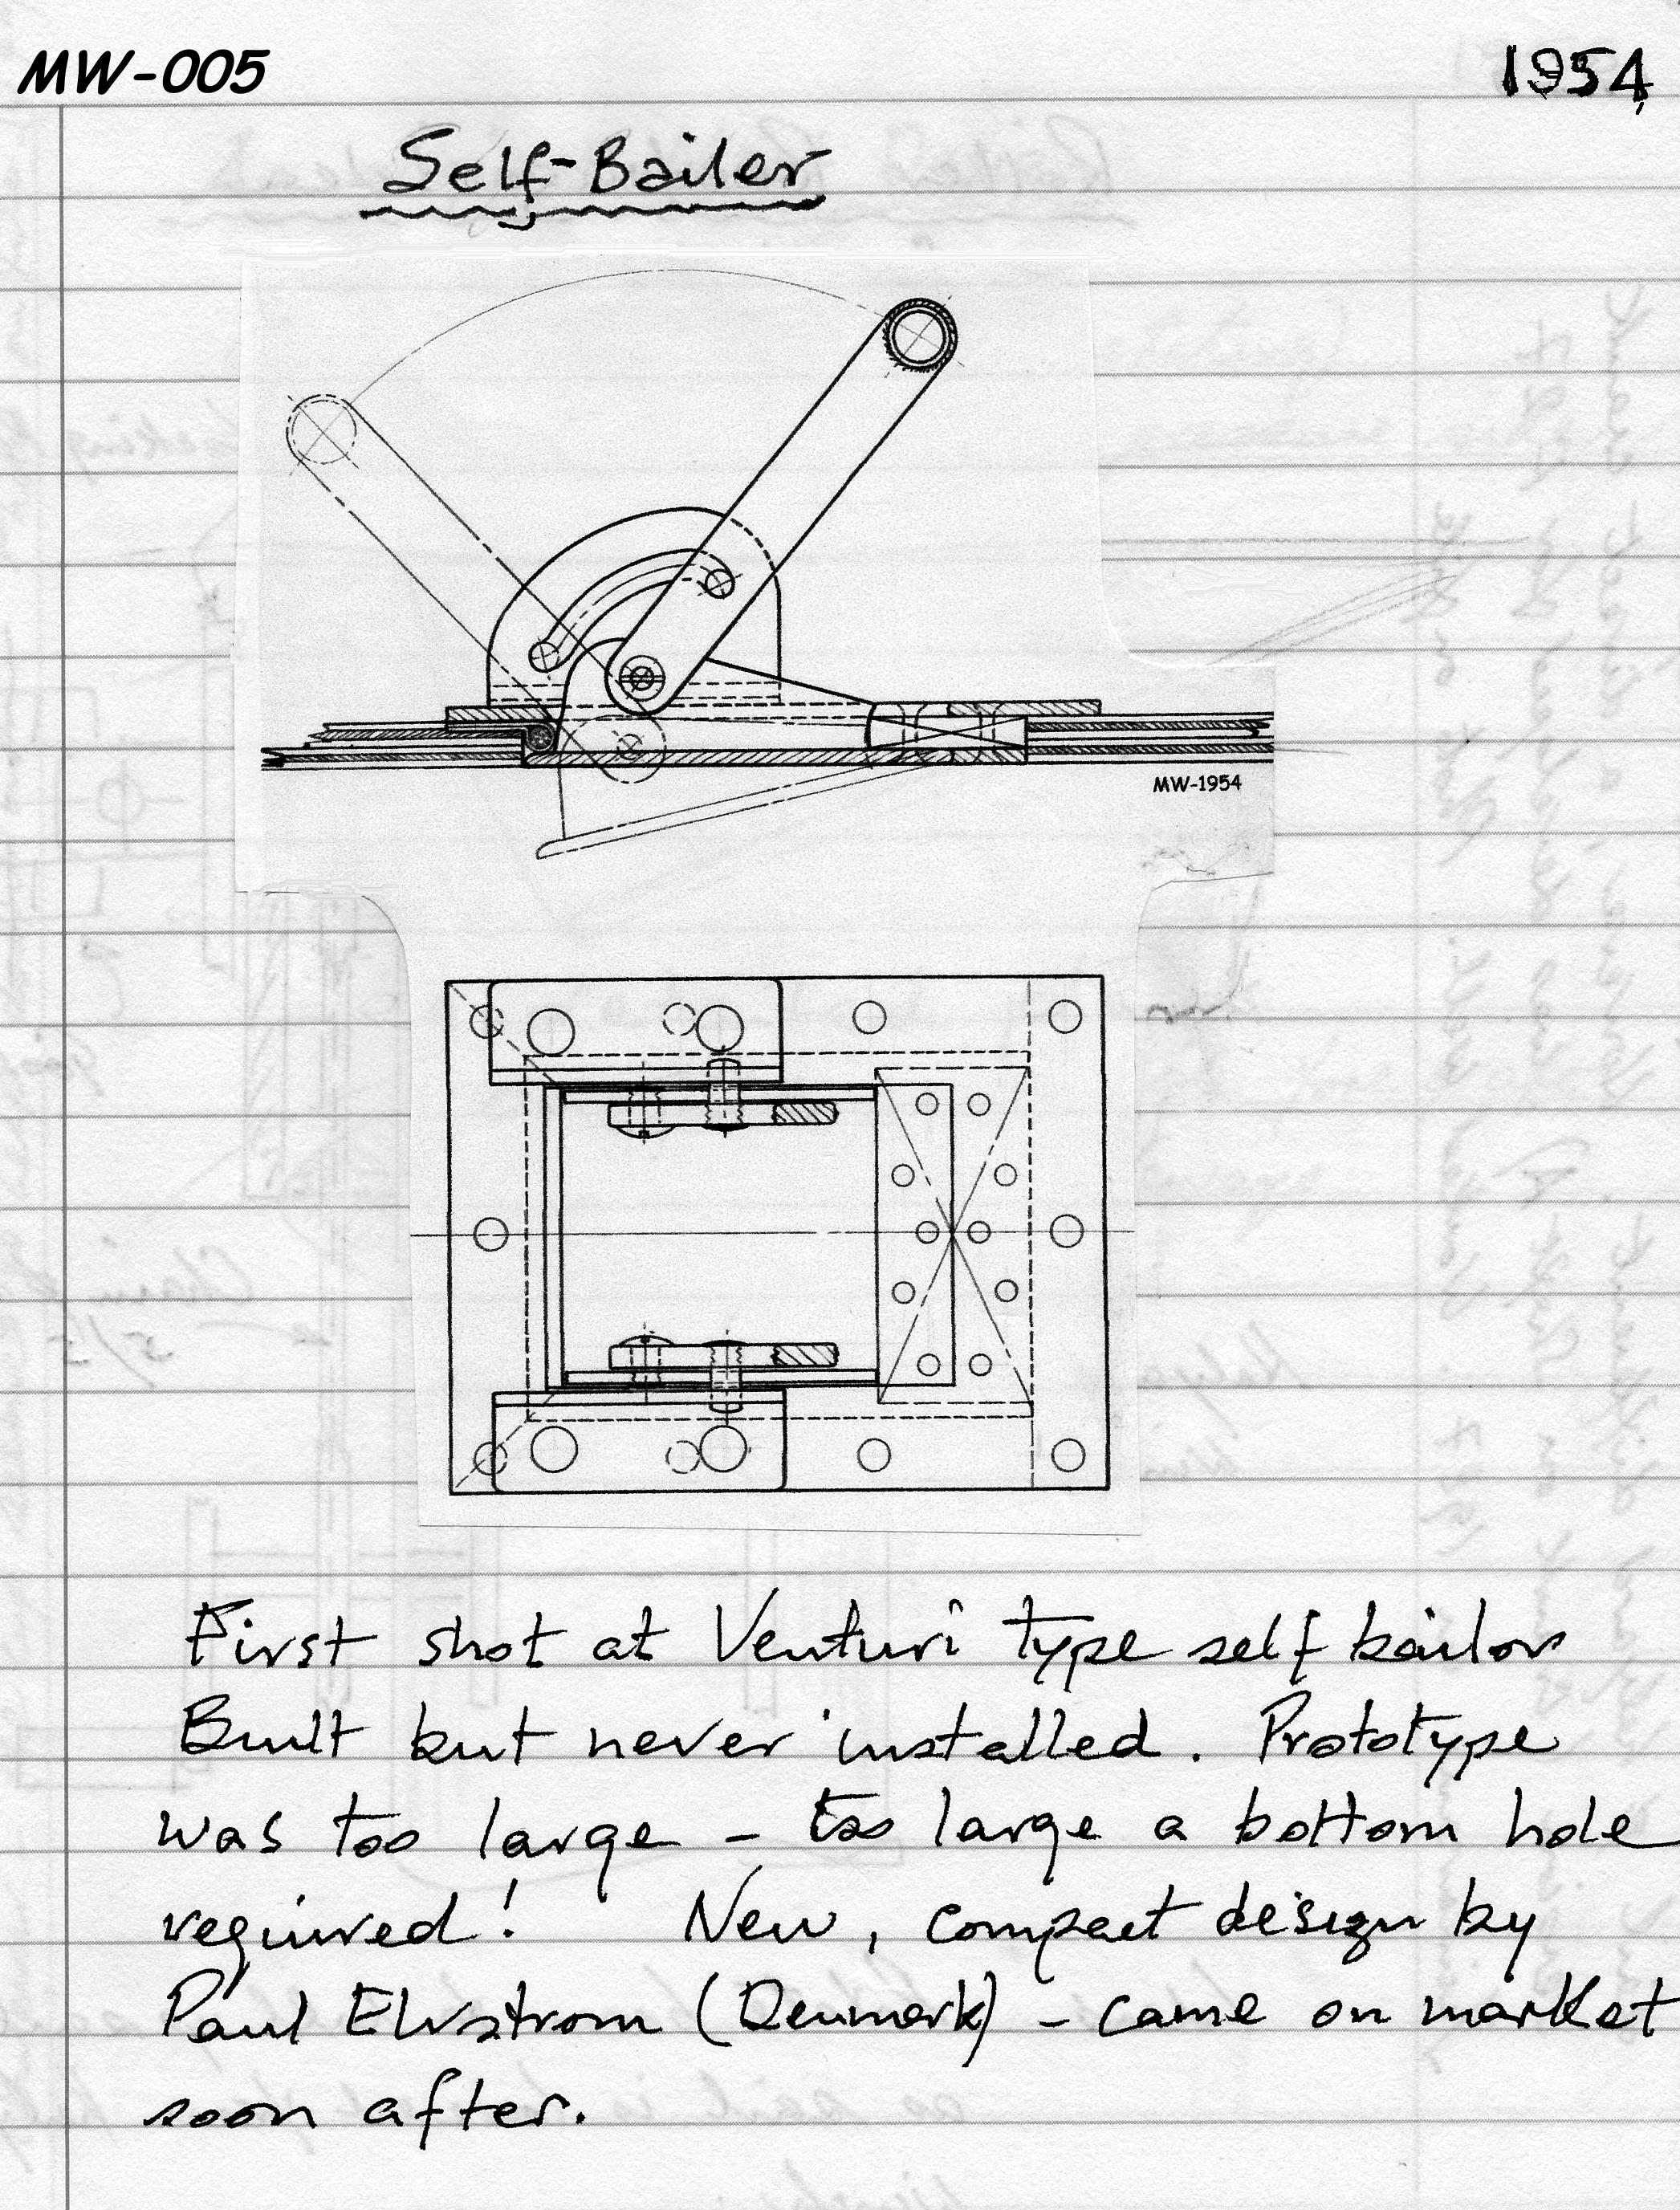 MW-005
1954
Self-Bailer
MW-1954
First shot at Venturi type self bailor
Built but never installed. Prototype
was too large – too large a bottom hole
required! New, compact design by
Paul Elvstrom (Denmark) – came on market
soon after.